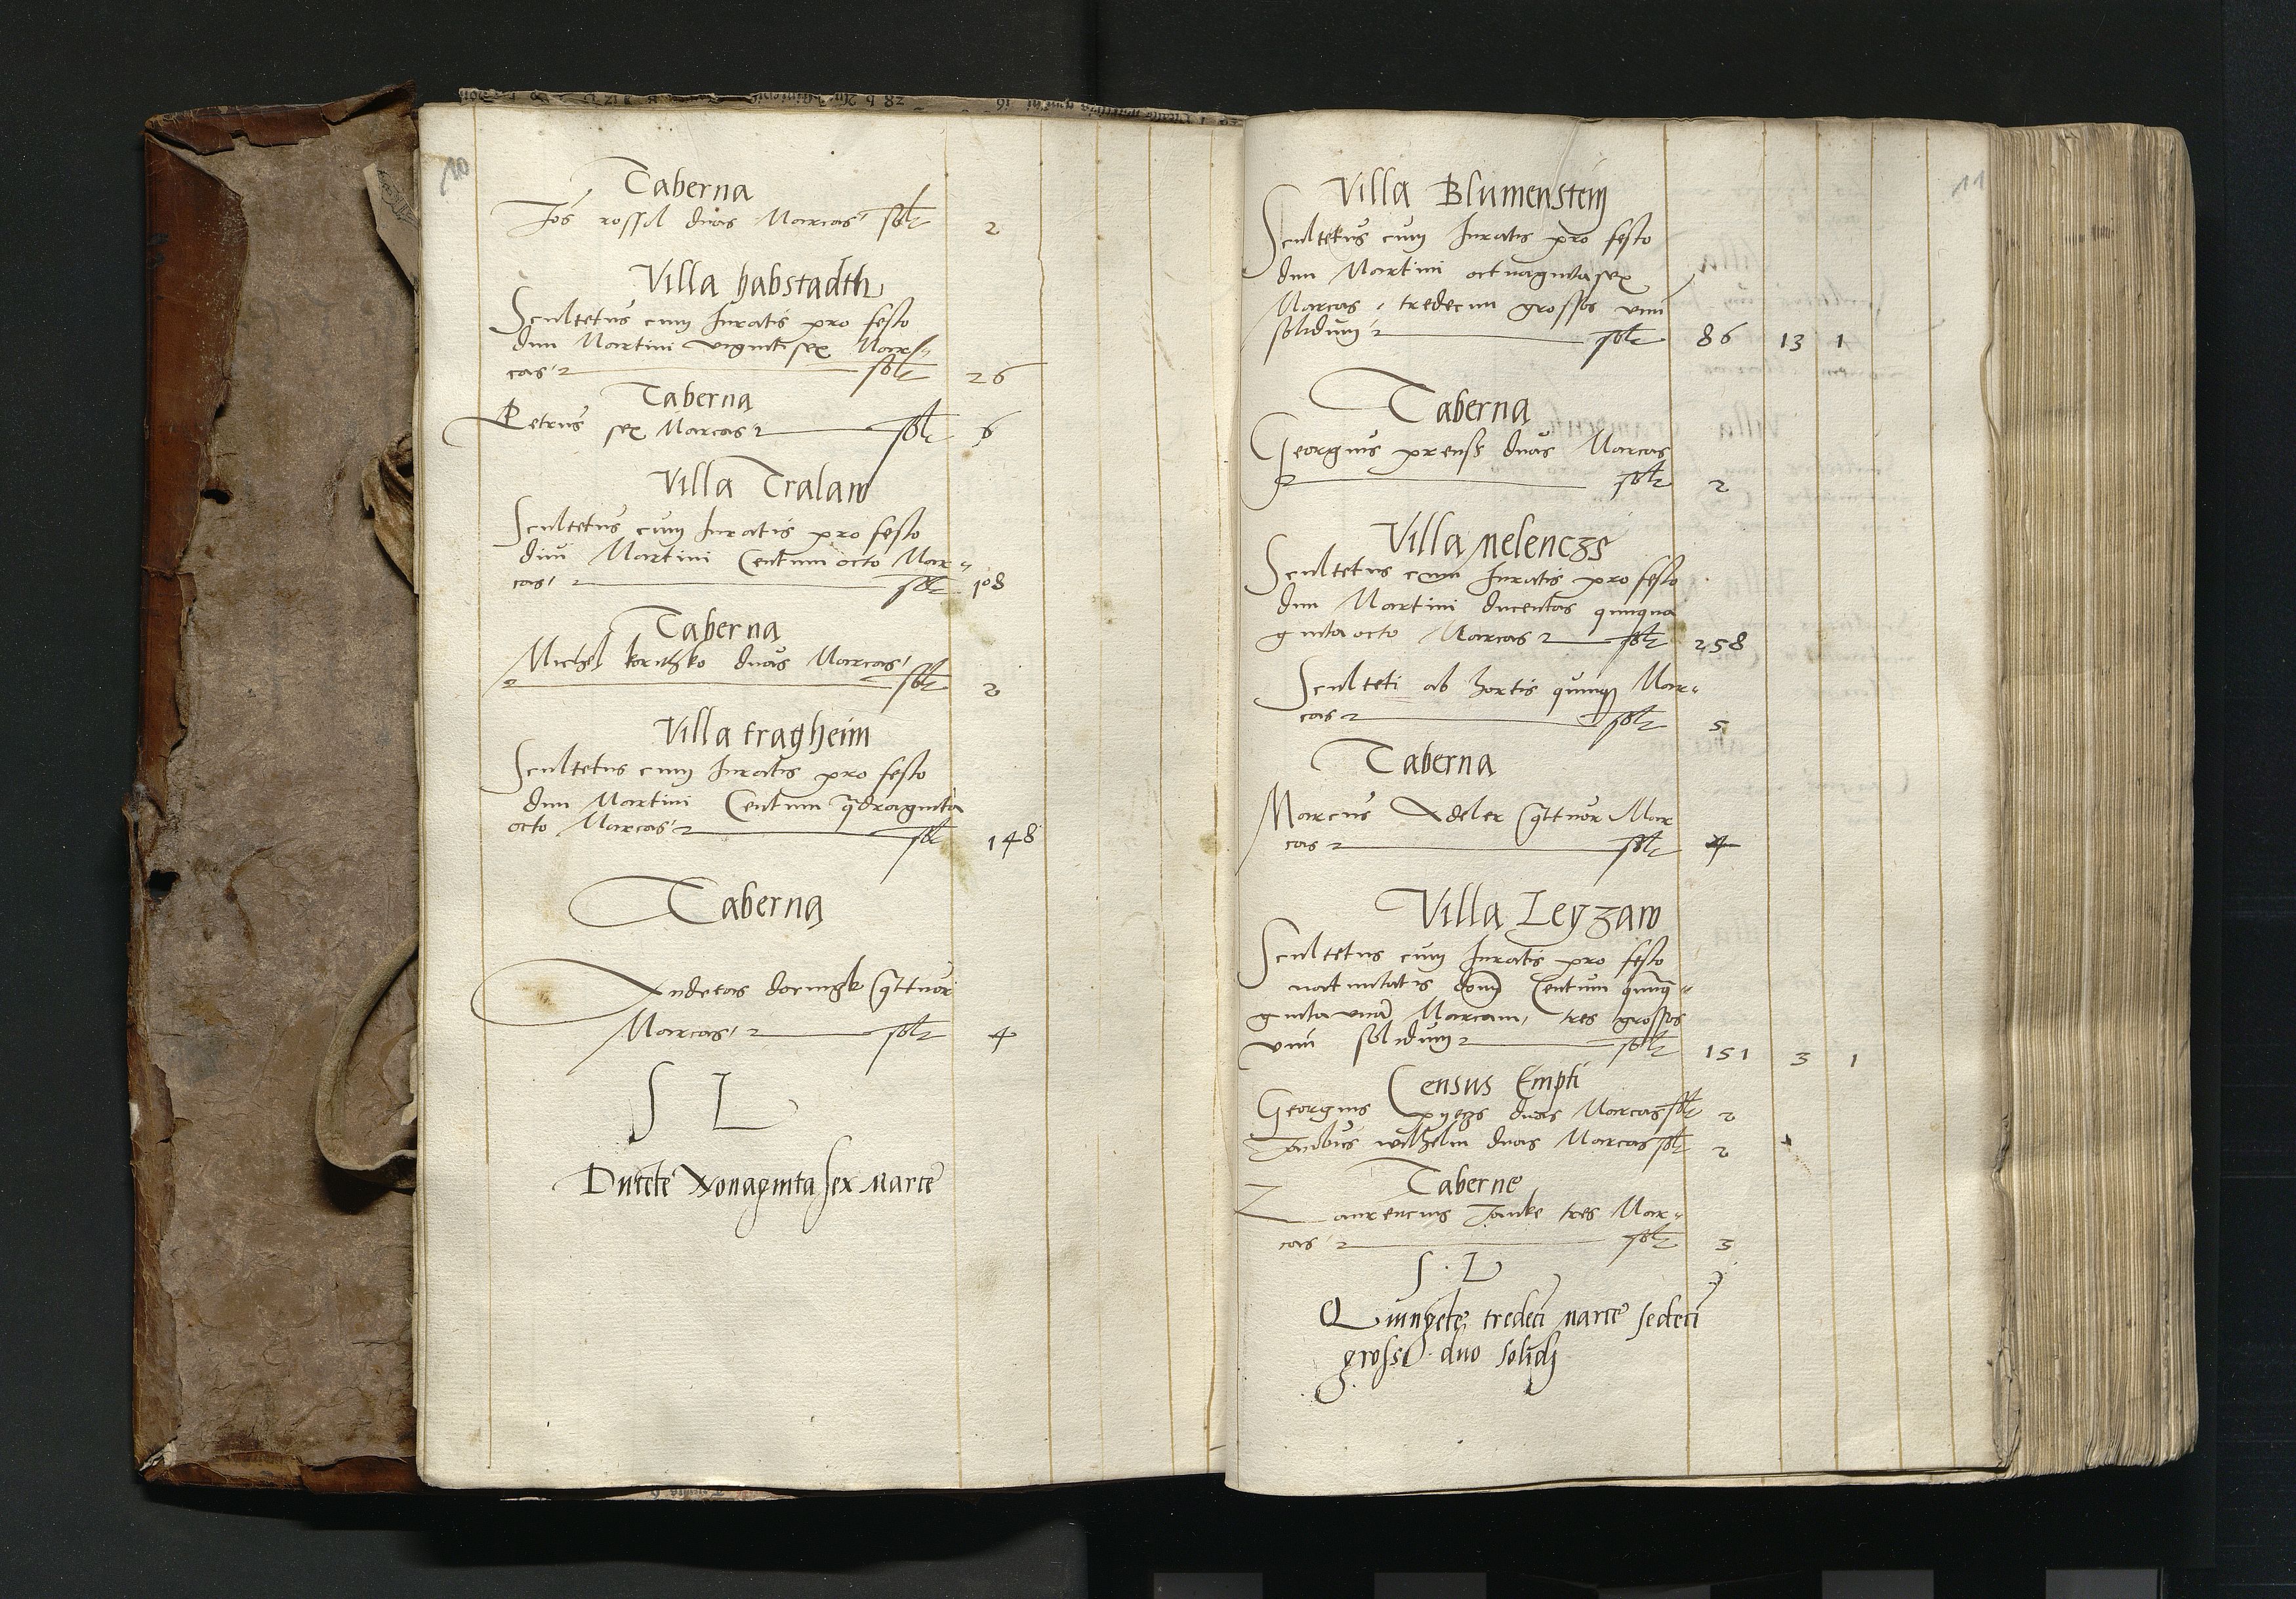 10
Taberna
Jos rossil duas Marcas solt 2
Villa habstadth
Scultetus cum Juratis pro festo
divi Martini viginti sex Mar-
cas solt 26
Taberna
Petrus sex Marcas solt 6
Villa Tralaw
Scultetus cum Juratis pro festo
divi Martini Centum octo Mar-
cas solt 108
Taberna
Michel korithko duas Marcas
solt 2
Villa tragheim
Scultetus cum Juratis pro festo
divi Martini Centum qdraginta
octo Marcas solt 148
Taberna
Andreas doringk qttuor
Marcas solt 4
S L
Ducete Nonaginta sex marce
11
Villa Blumenstein
Scultetus cum Juratis pro festo
divi Martini octuaginta sex
Marcas, tredecim grossos unu
solidum solt 86 13 1
Taberna
Georgius prenss duas Marcas
solt 2
Villa nelenczs
Scultetus cum Juratis pro festo
divi Martini ducentas quinqua
ginta octo Marcas solt 258
Sculteti ab hortis quinq Mar-
cas solt 5
Taberna
Marcus Adeler qttuor Mar
cas solt 4
Villa Leyzaw
Scultetus cum Juratis pro festo
nativitatis domi Centum quinq-
ginta una Marcam, tres grossos
unu solidum solt 151 3 1
Census Empti
Georgius duas Marcas solt 2
Jacobus wilhelm duas Marcas solt 2
Taberne
Laurencius Janke tres Mar-
cas solt 3
S. L
Quingete tredeci marce sedeci
grossi duo solidi